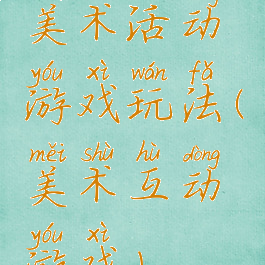 美术活动
yóu xì wán fǎ
游戏玩法(
měi shù hù dòng
美术互动
yóu xì
游戏)